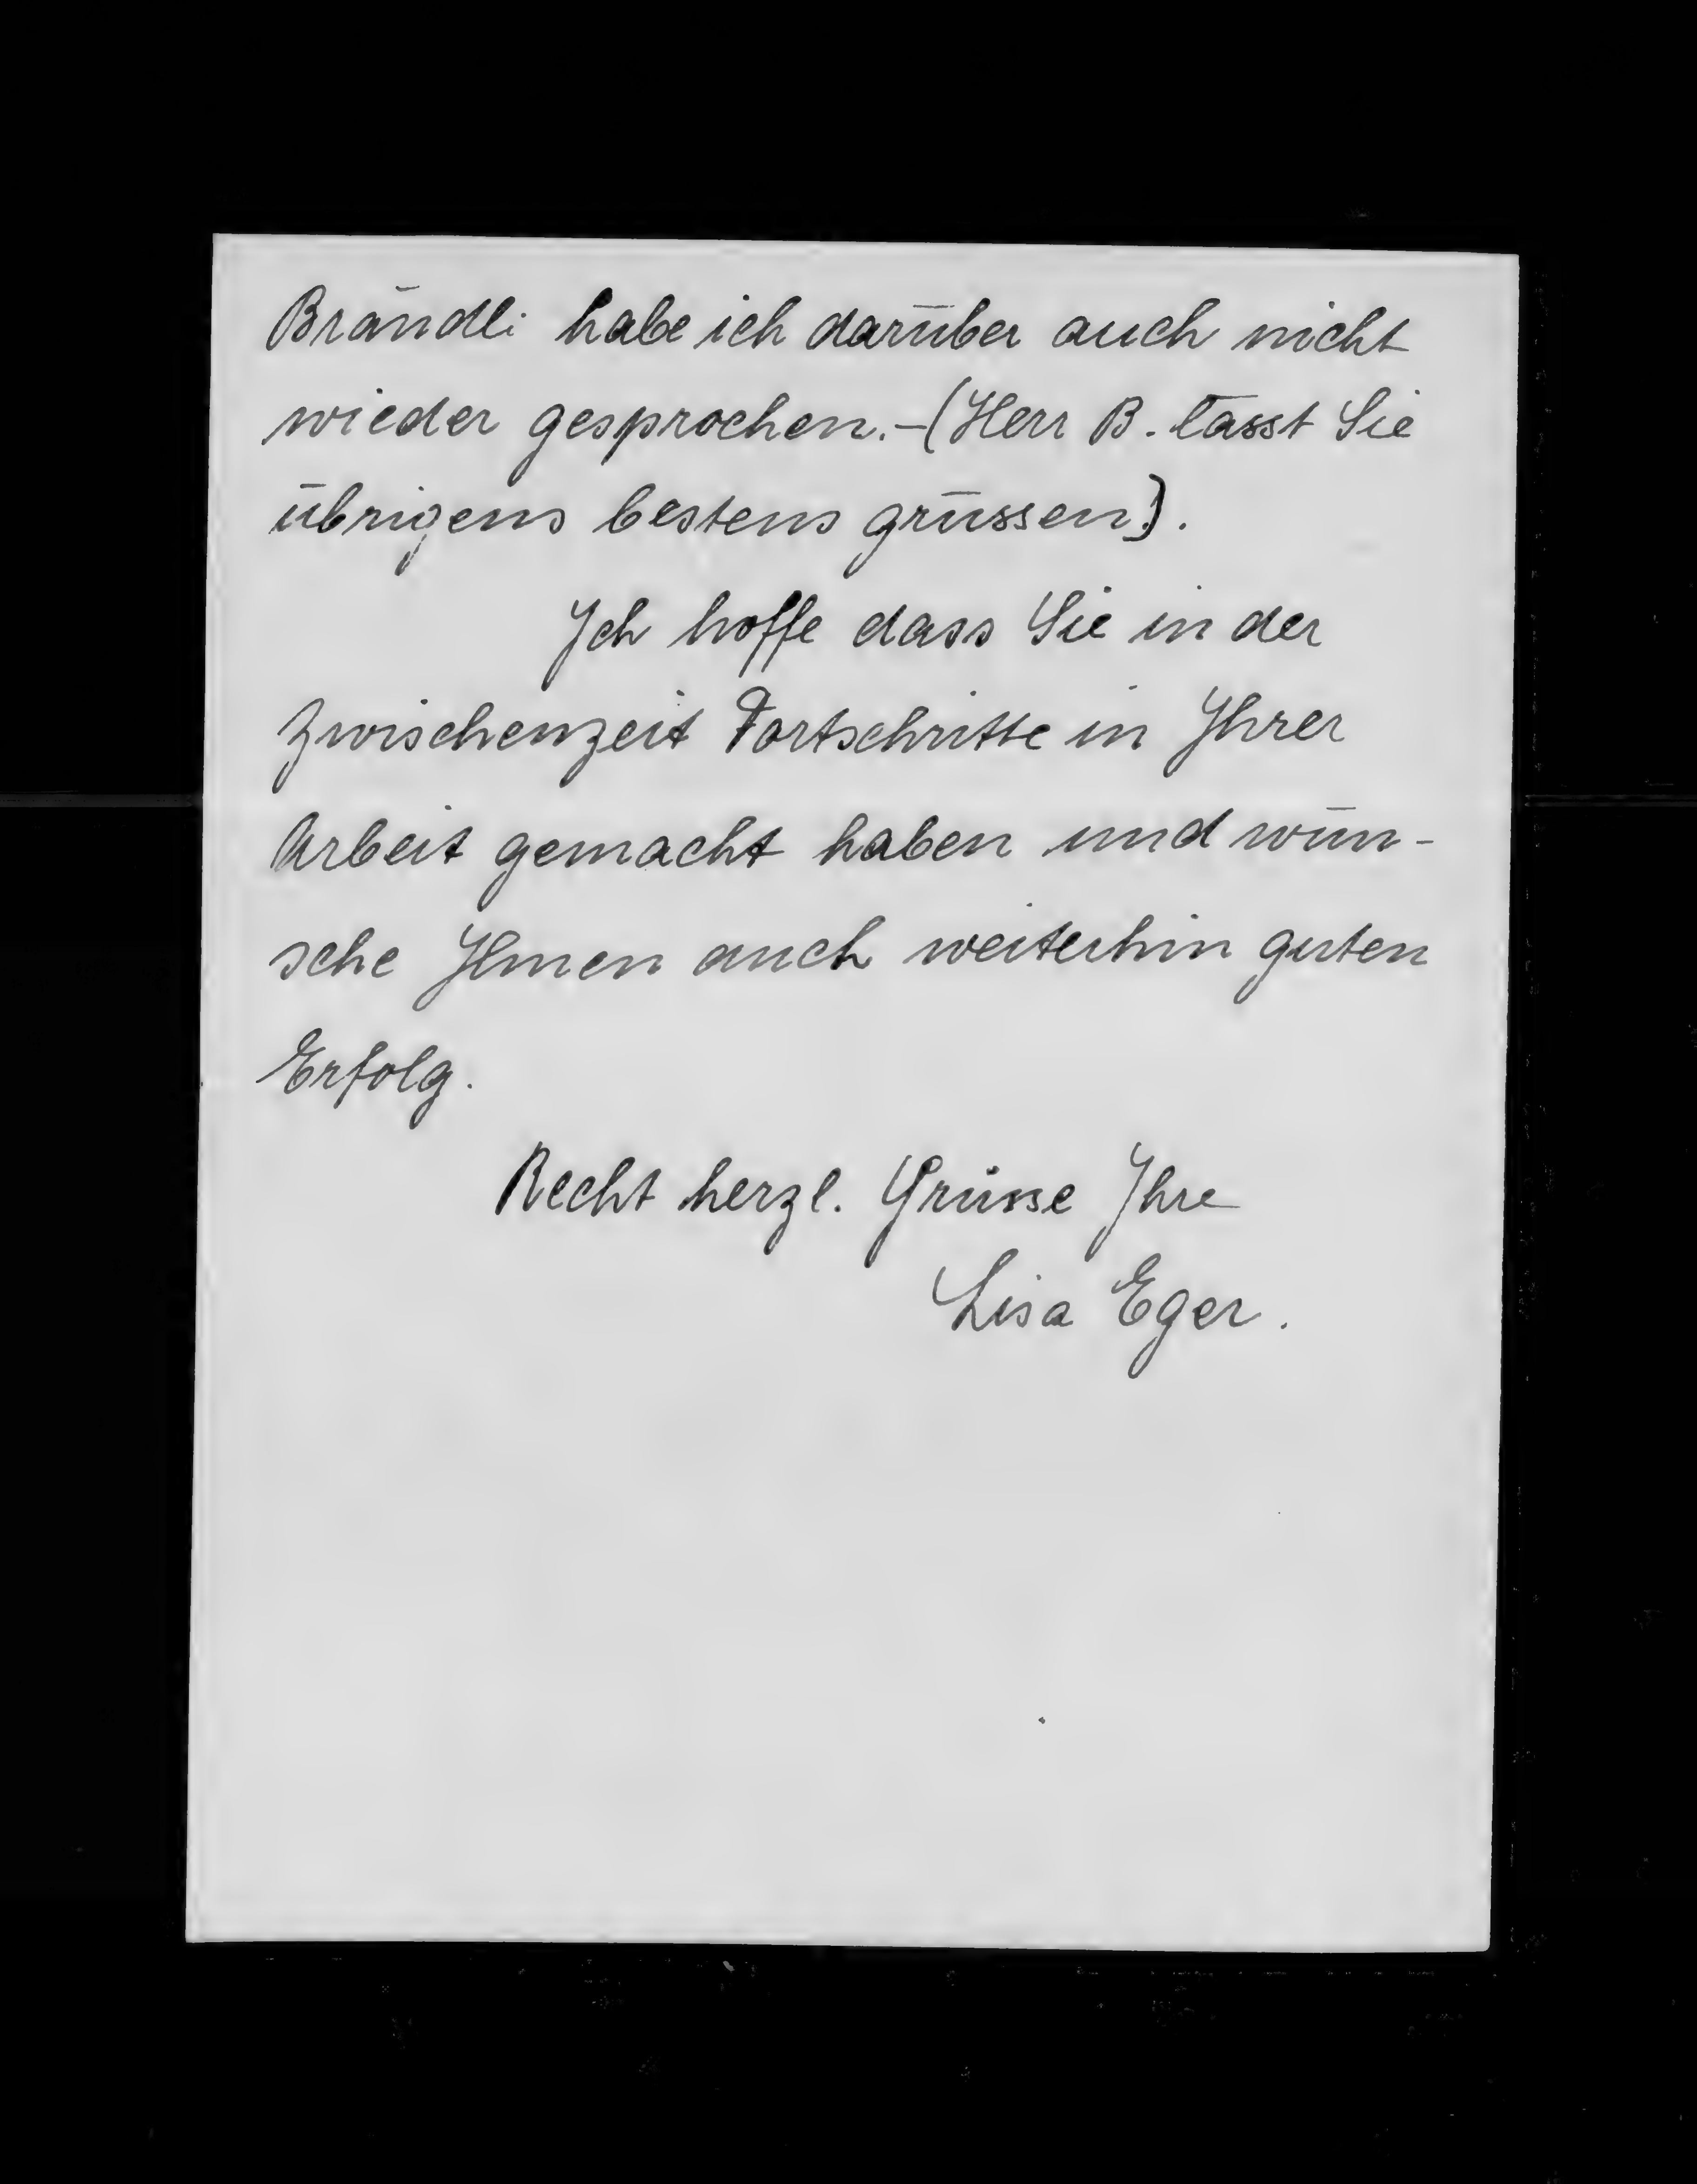 Brändli habe ich darüber auch nicht
wieder gesprochen.-(Herr B. lässt Sie
übrigens bestens grüssen).
Ich hoffe dass Sie in der
Zwischenzeit Fortschritte in Ihrer
Arbeit gemacht haben und wün-
sche Ihnen auch weiterhin guten
Erfolg.
Recht herzl. Grüsse Ihre
Lisa Eger.